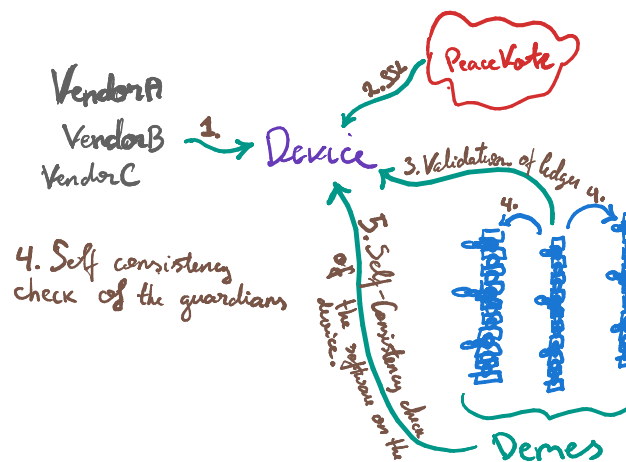 PeaceVote
2. SSL
VendorA
VendorB
VendorC
1.
Device
3. Validation of ledger
4.
4.
4. Self consistency
check of the guardians
5. Self-Consistency check
of the software on the
device.
Demes